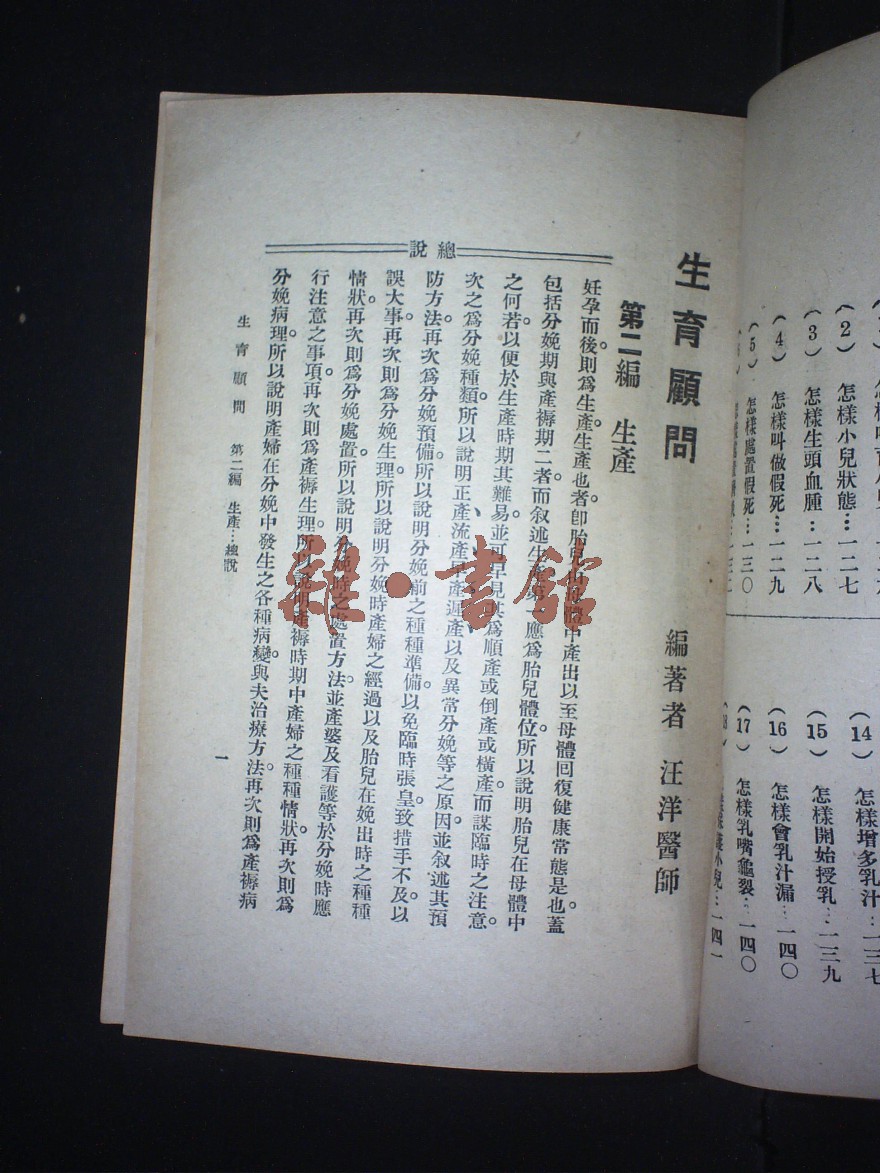 (2) 怎樣小兒狀態…一二七
(3) 怎樣生頭血腫…一二八
(4) 怎樣叫做假死…一二九
(5) 怎樣處置假死…一三〇
(14) 怎樣增多乳汁…一三七
(15) 怎樣開始授乳…一三九
(16) 怎樣會乳汁漏…一四〇
(17) 怎樣乳嘴龜裂…一四〇
小兒…一四一
生育顧問
編著者 汪洋醫師
第二編 生產
總說
妊孕而後則爲生產。生產也者。卽胎兒由母體中產出以至母體回復健康常態是也。蓋
包括分娩期與產褥期二者。而叙述生產第一應爲胎兒體位。所以說明胎兒在母體中
之何若。以便於生產時期其難易。並可早見其爲順產或倒產或橫產。而謀臨時之注意。
次之爲分娩種類。所以說明正產流產早產遲產以及異常分娩等之原因。並叙述其預
防方法。再次爲分娩預備。所以說明分娩前之種種準備以免臨時張皇致措手不及。以
誤大事。再次則爲分娩生理。所以說明分娩時產婦之經過以及胎兒在娩出時之種種
情狀。再次則爲分娩處置。所以說明分娩時之處置方法。並產婆及看護等於分娩時應
行注意之事項。再次則爲產褥生理。所以說明產褥時期中產婦之種種情狀。再次則爲
分娩病理。所以說明產婦在分娩中發生之各種病變與夫治療方法。再次則爲產褥病
生育顧問 第二編 生產…總說
一
雜·書館